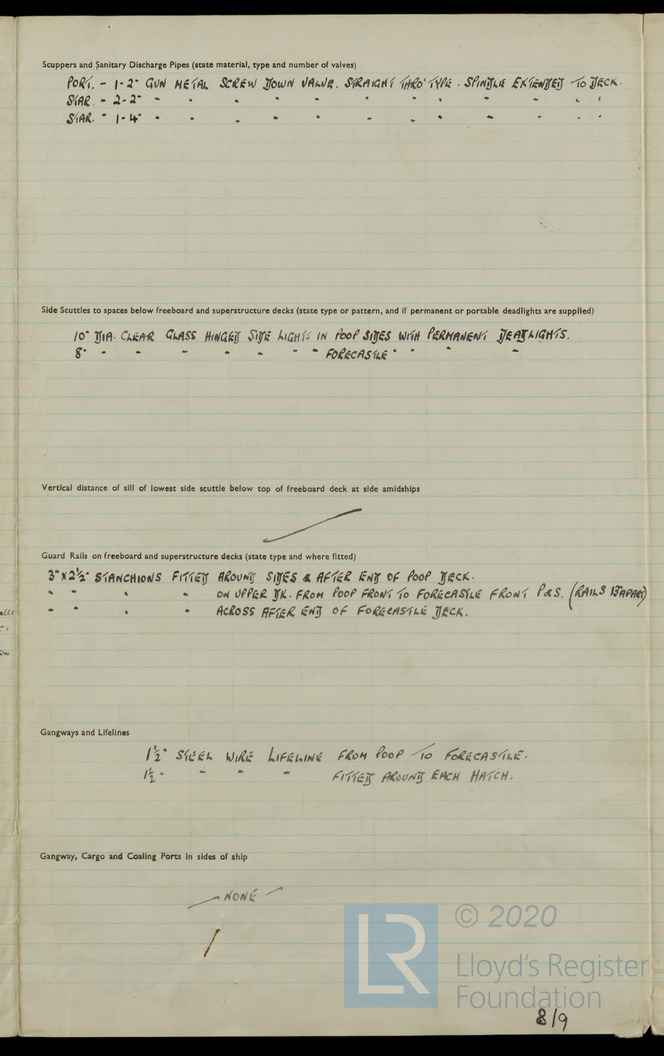 Scuppers and Sanitary Discharge Pipes (state material, type and number of valves)
PORT. - 1-2" GUN METAL SCREW DOWN VALVE. STRAIGHT THRO' TYPE. SPINDLE EXTENDED TO DECK.
STAR. - 2-2" " " " " " " " " " " "
STAR. " 1-4" " " " " " " " " " " "
Side Scuttles to spaces below freeboard and superstructure decks (state type or pattern, and if permanent or portable deadlights are supplied)
10" DIA. CLEAR GLASS HINGED SIDE LIGHTS IN POOP SIDES WITH PERMANENT DEADLIGHTS.
8" " " " " " " " FORECASTLE " " " "
Vertical distance of sill of lowest side scuttle below top of freeboard deck at side amidships
Guard Rails on freeboard and superstructure decks (state type and where fitted)
3" X 2½" STANCHIONS FITTED AROUND SIDES & AFTER END OF POOP DECK.
" " " " ON UPPER DK. FROM POOP FRONT TO FORECASTLE FRONT P&S. (RAILS 13" APART)
" " " " ACROSS AFTER END OF FORECASTLE DECK.
Gangways and Lifelines
1½" STEEL WIRE LIFELINE FROM POOP TO FORECASTLE.
1½" " " " FITTED AROUND EACH HATCH.
Gangway, Cargo and Coaling Ports in sides of ship
NONE
© 2020
LR
Lloyd's Register
Foundation
8/9